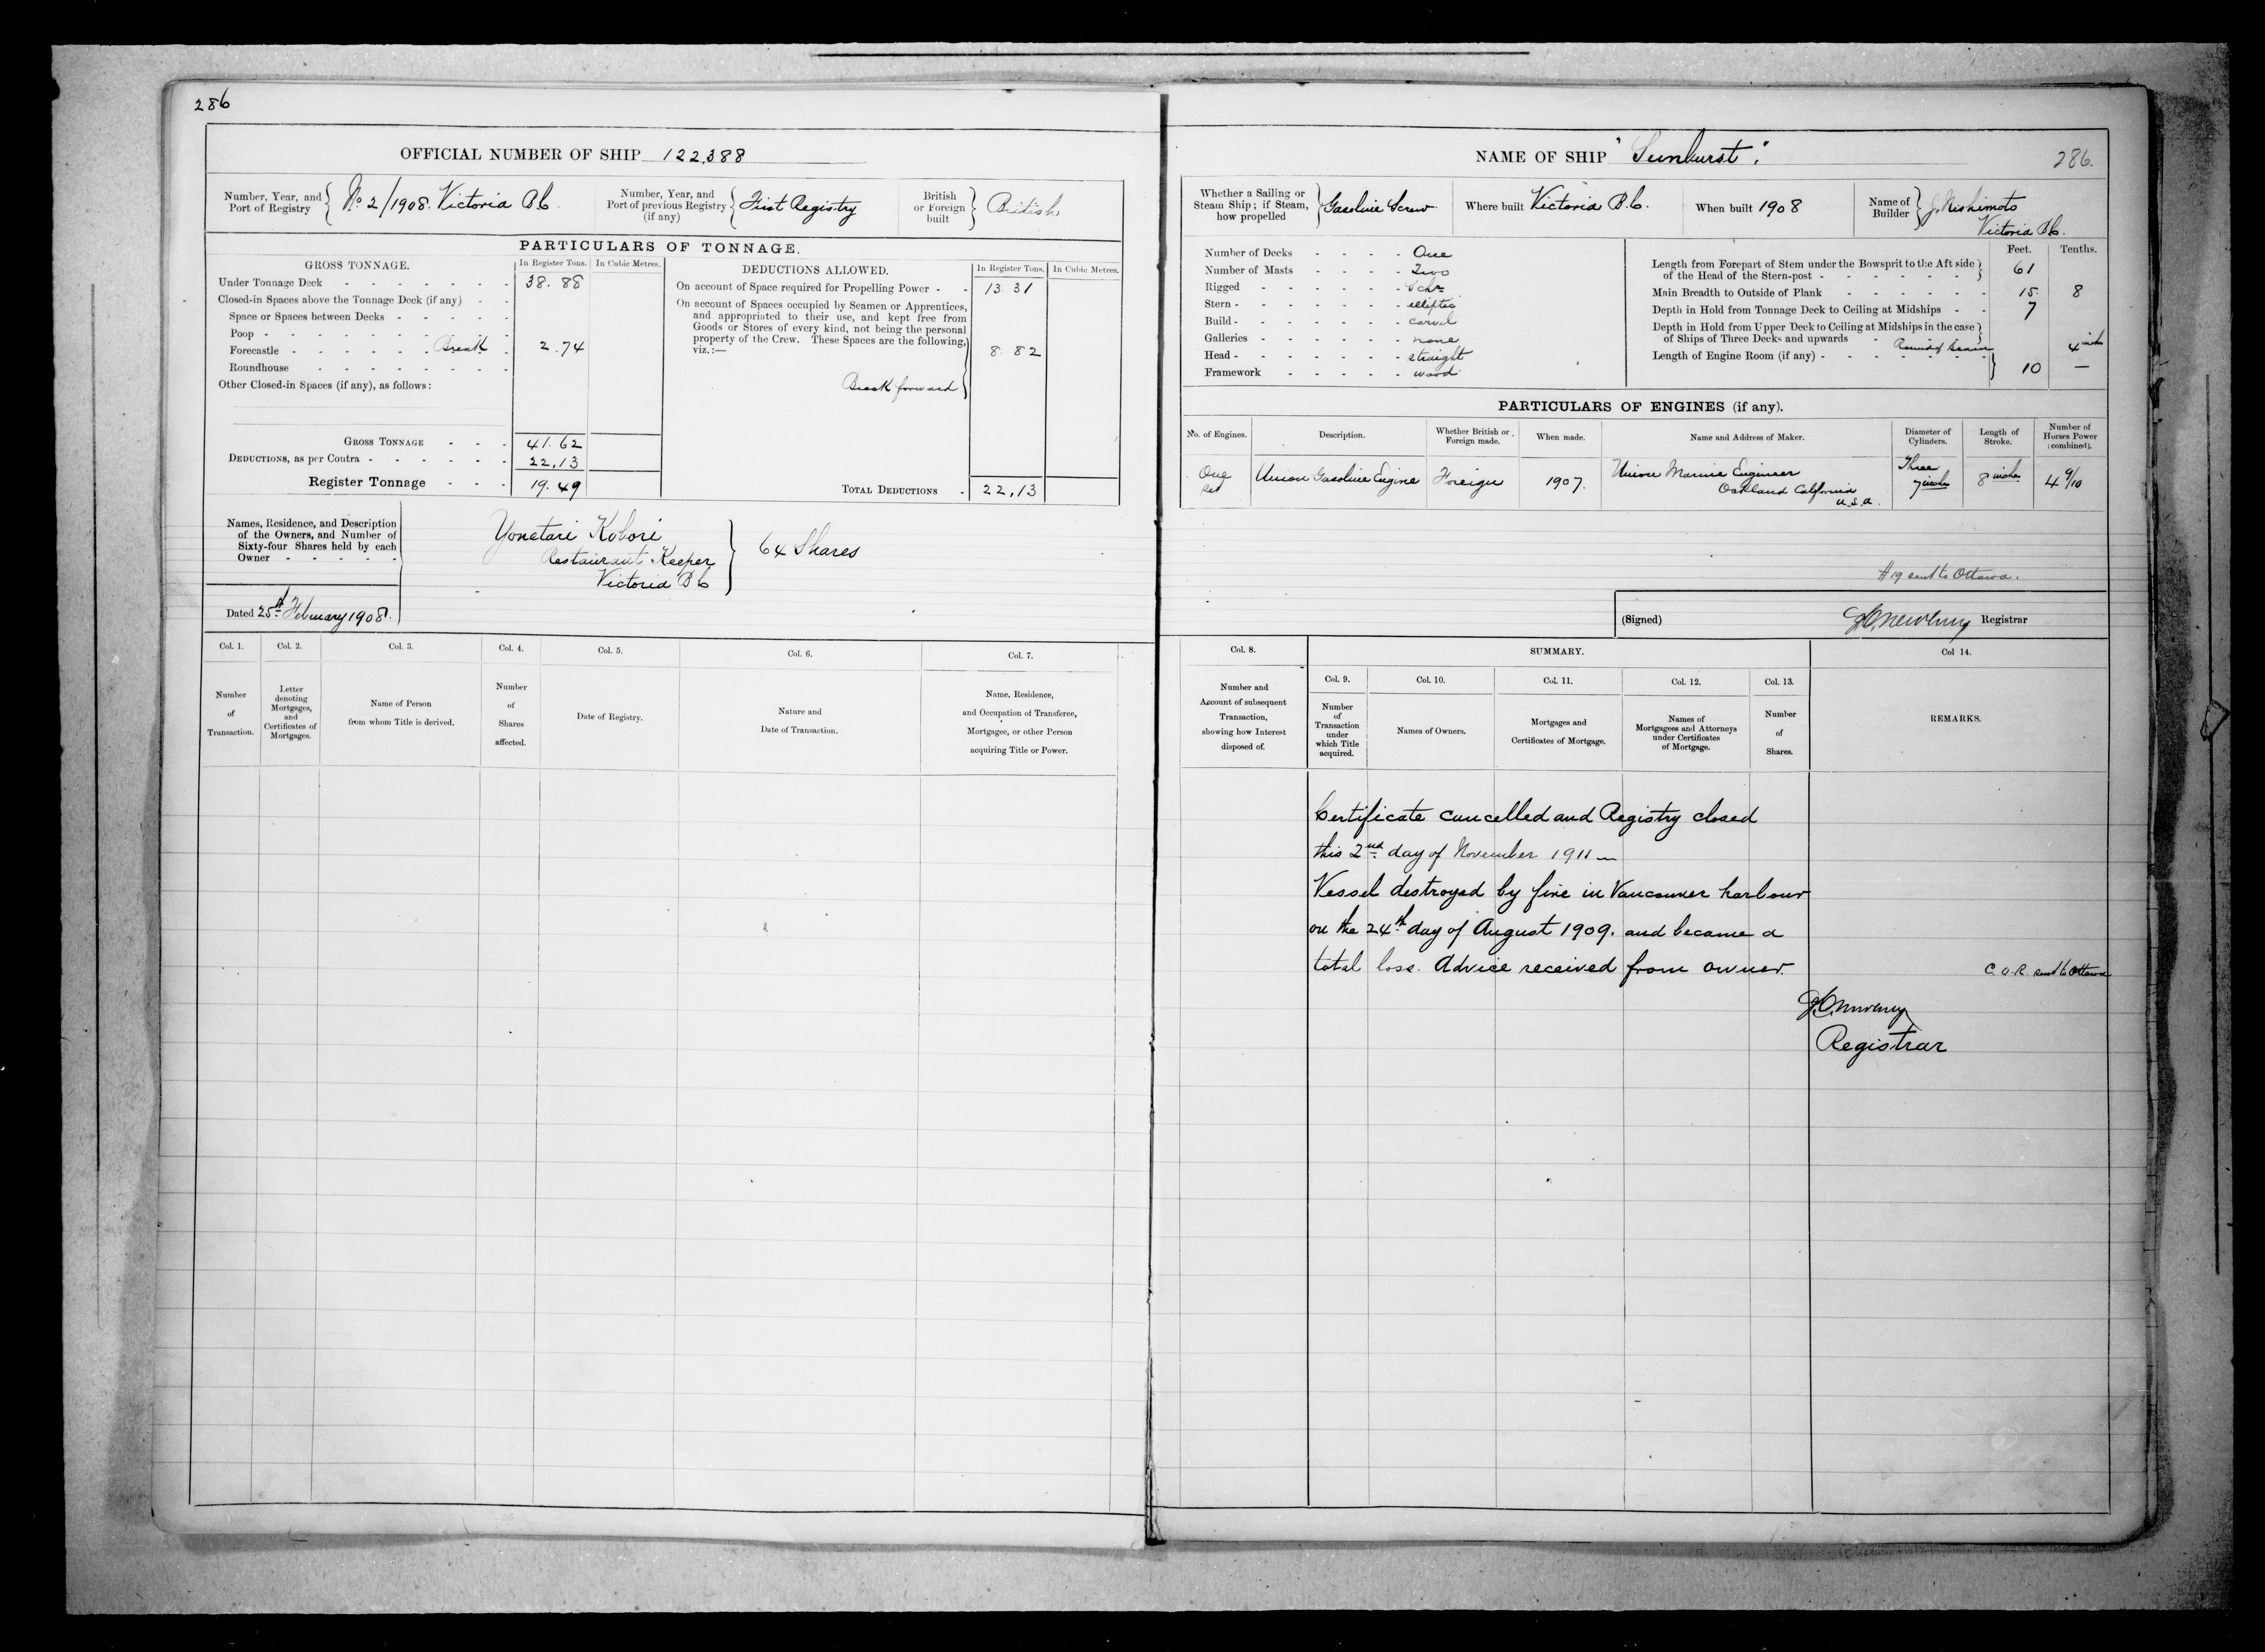 286
OFFICIAL NUMBER OF SHIP 122,388
Number, Year, and Port of Registry { No 2/1908. Victoria B.C.
Number, Year, and Port of previous Registry (if any) { First Registry
British or Foreign built } British
PARTICULARS OF TONNAGE.
GROSS TONNAGE.
In Register Tons.
In Cubic Metres.
Under Tonnage Deck 38.88
Closed-in Spaces above the Tonnage Deck (if any)
Space or Spaces between Decks
Poop
Forecastle Break 2.74
Roundhouse
Other Closed-in Spaces (if any), as follows:
GROSS TONNAGE 41.62
DEDUCTIONS, as per Contra 22,13
Register Tonnage 19.49
DEDUCTIONS ALLOWED.
In Register Tons.
In Cubic Metres.
On account of Space required for Propelling Power 13.31
On account of Spaces occupied by Seamen or Apprentices,
and appropriated to their use, and kept free from
Goods or Stores of every kind, not being the personal
property of the Crew. These Spaces are the following,
viz.:— 8.82
Break forward
TOTAL DEDUCTIONS 22,13
Names, Residence, and Description
of the Owners, and Number of
Sixty-four Shares held by each
Owner
Yonatari Kobori
Restaurant Keeper
Victoria B C
64 Shares
Dated 25th February 1908.
Col. 1.
Number
of
Transaction.
Col. 2.
Letter
denoting
Mortgages,
and
Certificates of
Mortgages.
Col. 3.
Name of Person
from whom Title is derived.
Col. 4.
Number
of
Shares
affected.
Col. 5.
Date of Registry.
Col. 6.
Nature and
Date of Transaction.
Col. 7.
Name, Residence,
and Occupation of Transferee,
Mortgagee, or other Person
acquiring Title or Power.
NAME OF SHIP "Sunburst".
286.
Whether a Sailing or Steam Ship; if Steam, how propelled } Gasoline Screw
Where built Victoria B.C.
When built 1908
Name of Builder { J. Nishimoto
Victoria B.C.
Number of Decks One
Number of Masts Two
Rigged Schr
Stern elliptic
Build carvel
Galleries none
Head straight
Framework wood
Feet. Tenths.
Length from Forepart of Stem under the Bowsprit to the Aft side
of the Head of the Stern-post 61
Main Breadth to Outside of Plank 15. 8
Depth in Hold from Tonnage Deck to Ceiling at Midships 7
Depth in Hold from Upper Deck to Ceiling at Midships in the case
of Ships of Three Decks and upwards
Round of beam 4 inches
Length of Engine Room (if any) 10 —
PARTICULARS OF ENGINES (if any).
No. of Engines.
Description.
Whether British or Foreign made.
When made.
Name and Address of Maker.
Diameter of Cylinders.
Length of Stroke.
Number of Horses Power (combined).
One set
Union Gasoline Engine
Foreign
1907.
Union Marine Engineer
Oakland California
U.S.A.
Three
7 inches
8 inches
4 9/10
#19 sent to Ottawa.
(Signed) Registrar
Col. 8.
Number and
Account of subsequent
Transaction,
showing how Interest
disposed of.
SUMMARY.
Col. 9.
Number
of
Transaction
under
which Title
acquired.
Col. 10.
Names of Owners.
Col. 11.
Mortgages and
Certificates of Mortgage.
Col. 12.
Names of
Mortgagees and Attorneys
under Certificates
of Mortgage.
Col. 13.
Number
of
Shares.
Col 14.
REMARKS.
Certificate cancelled and Registry closed
this 2nd day of November 1911 —
Vessel destroyed by fire in Vancouver harbour
on the 24th day of August 1909. and became a
total loss. Advice received from owner.
C.O.R. sent to Ottawa
Registrar